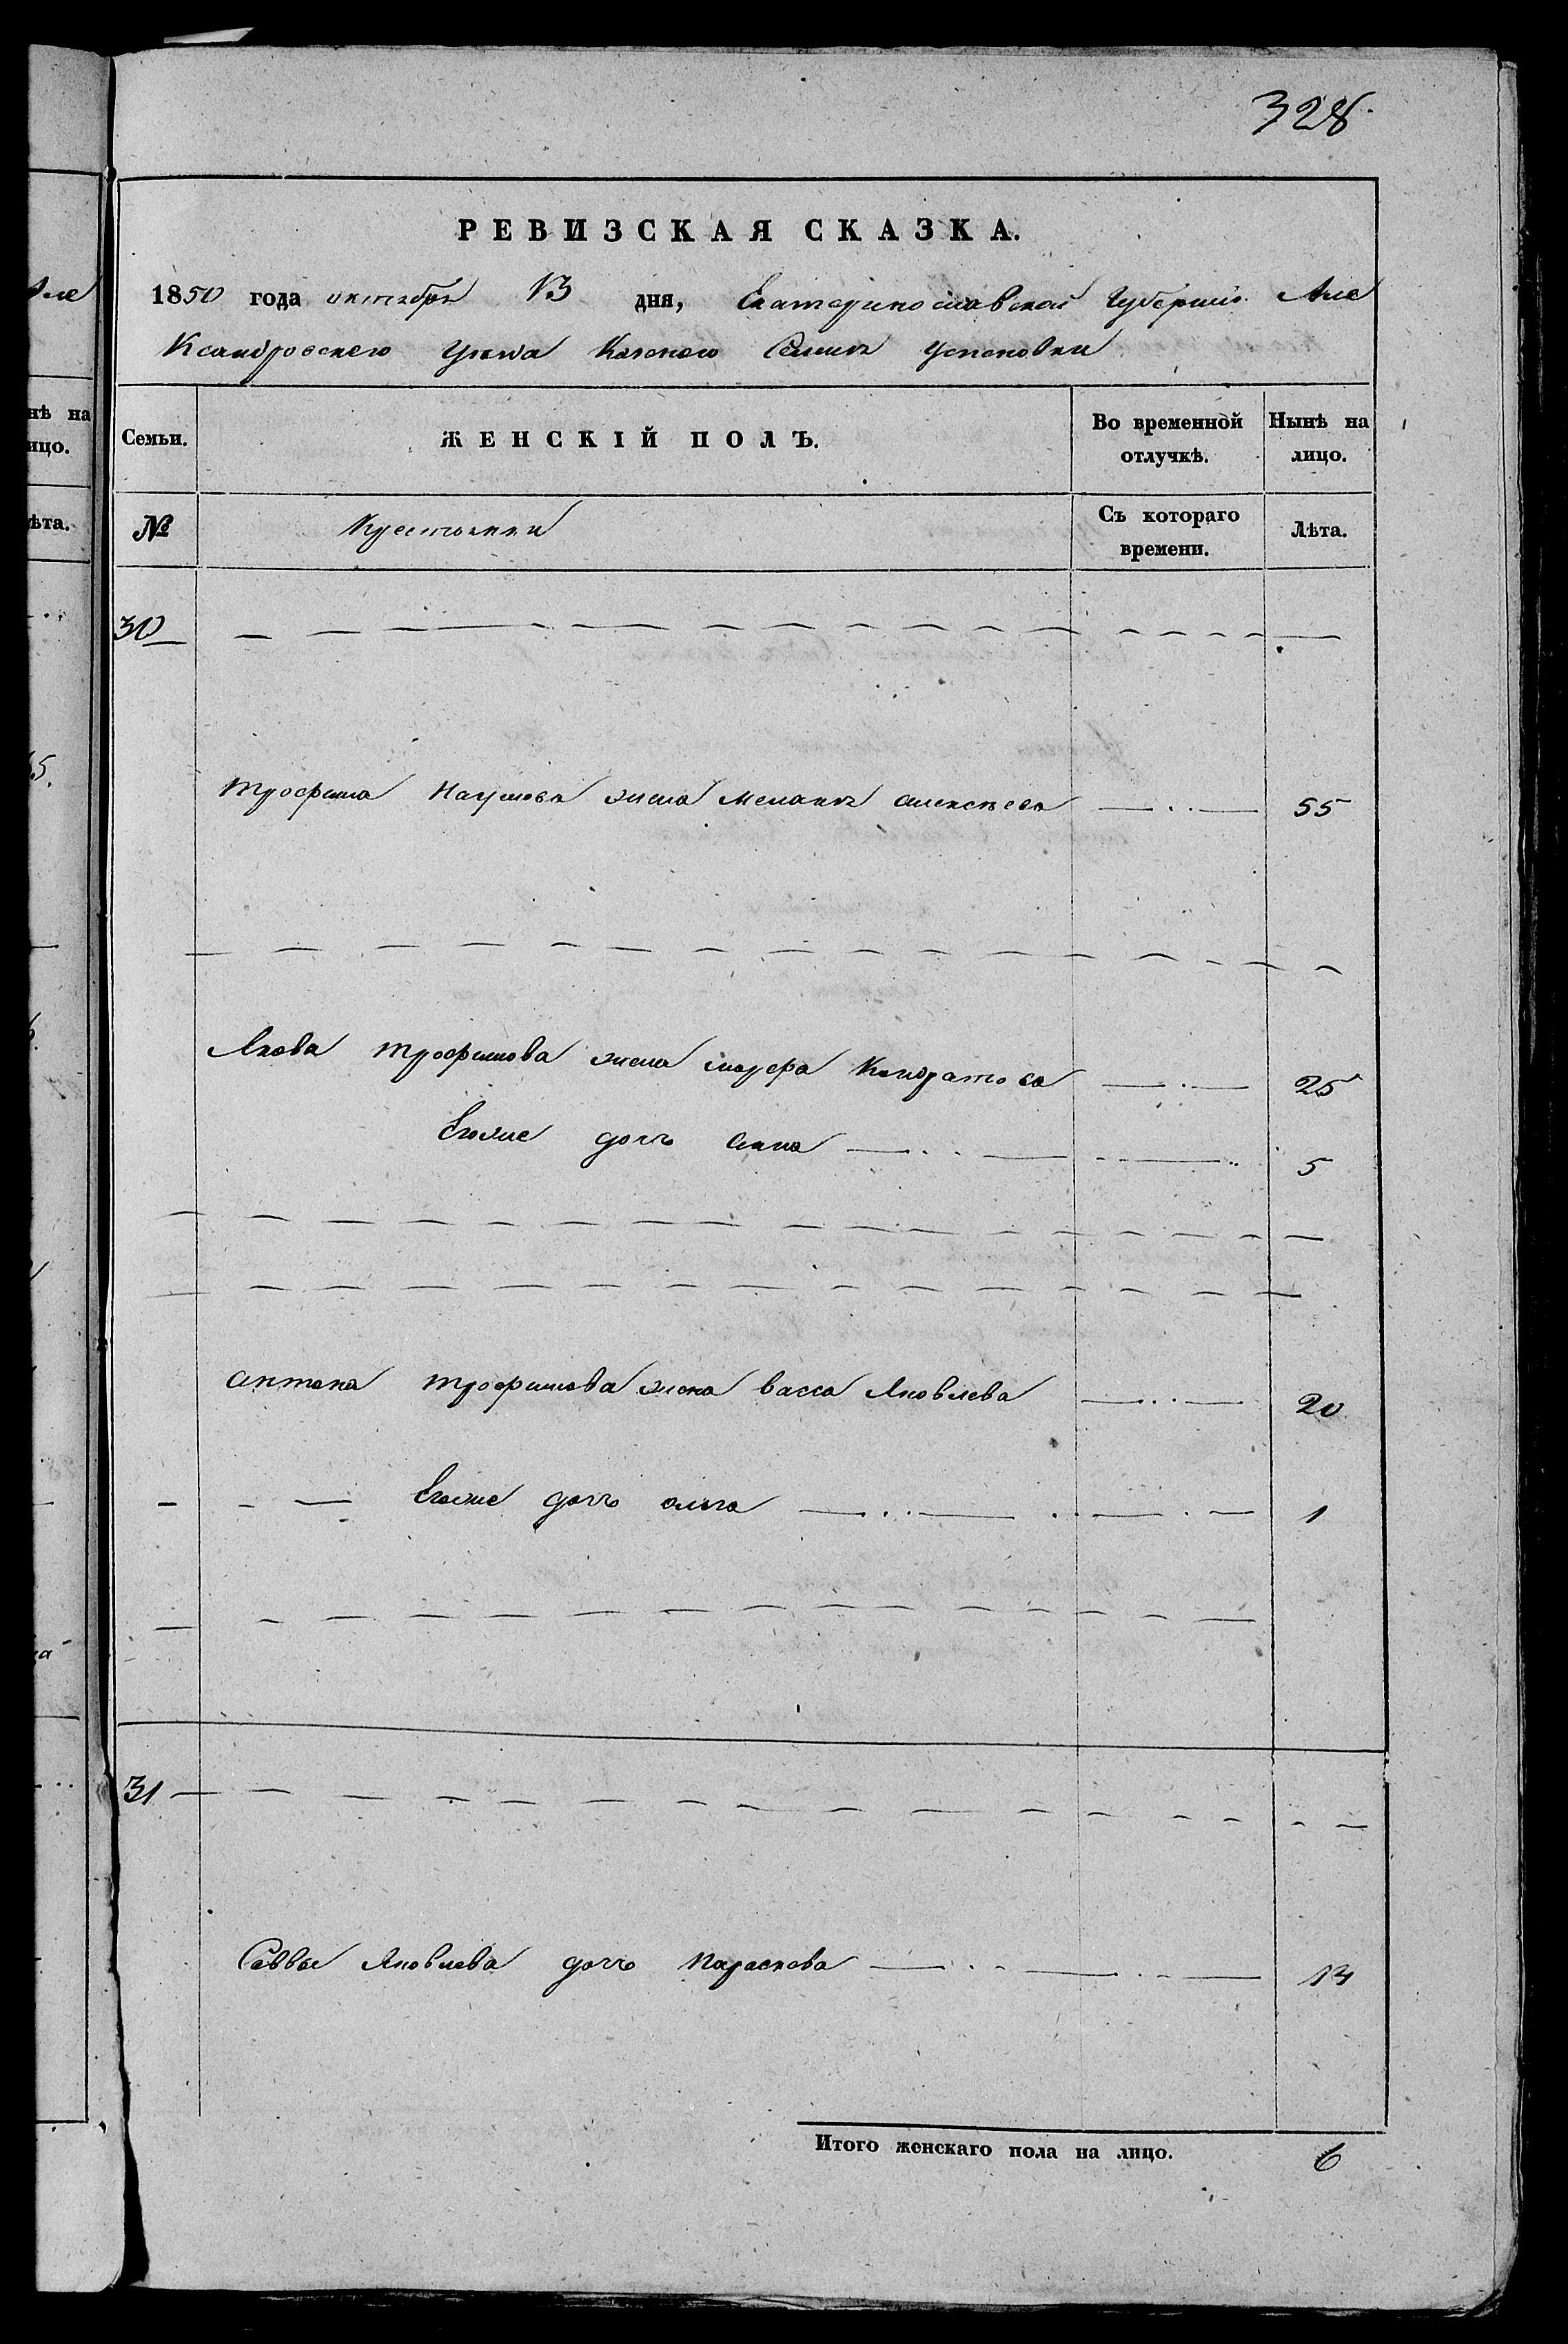 328
РЕВИЗСКАЯ СКАЗКА.
1850 года октября 13 дня, Екатеринославской Губернии Але
ксандровского Уезда Казеного Селения Успеновки
Семьи. ЖЕНСКІЙ ПОЛЪ. Во временной отлучкѣ. Нынѣ на лицо.
№ Крестьянки Съ котораго времени. Лѣта.
30
Трофима Наумова жена Мелания алексеева 55
Якова трофимова жена Кондратова 25
Егоже дочь анна 5
антона трофимова жена васса Яковлева 20
Егоже дочь олга 1
31
Саввы Яковлева дочь Параскева 14
Итого женскаго пола на лицо. 6
Але
нѣ на
ицо.
ѣта.